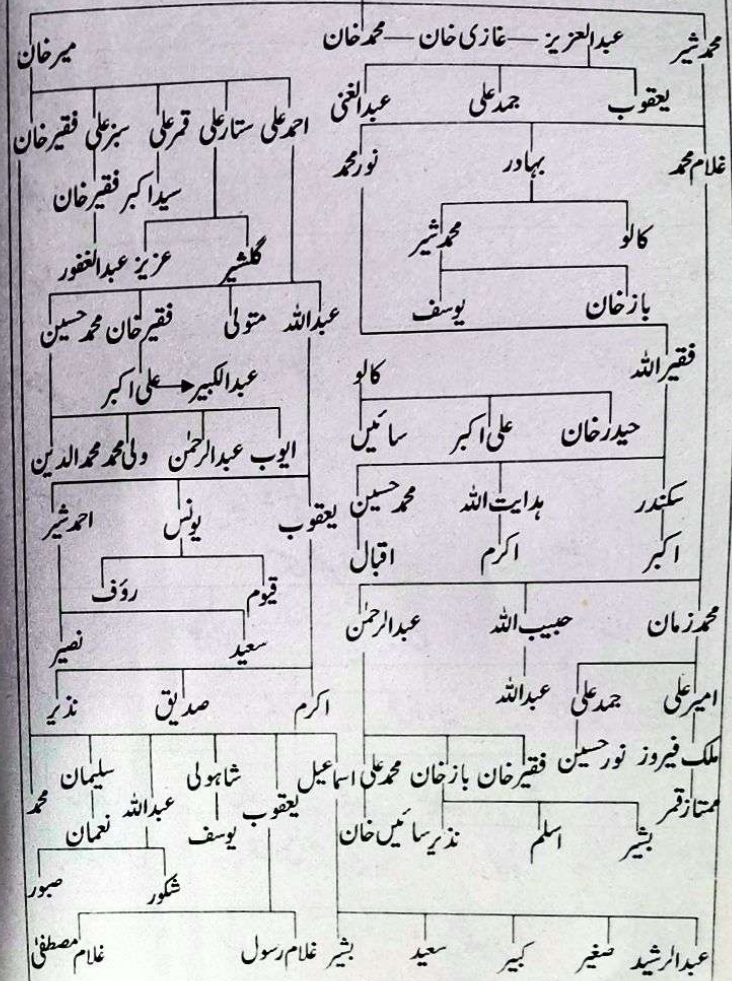 محمد شیر عبدالعزیز — غازی خان — محمد خان میر خان
یعقوب جمد علی عبدالغنی احمد علی ستار علی قمر علی سبز علی فقیر خان
غلام محمد بہادر نور محمد سید اکبر فقیر خان
کالو محمد شیر گلشیر عزیز عبدالغفور
باز خان یوسف عبداللہ متولی فقیر خان محمد حسین
فقیر اللہ کالو عبدالکبیر علی اکبر
حیدر خان علی اکبر سائیں ایوب عبدالرحمٰن ولی محمد محمد الدین
سکندر ہدایت اللہ محمد حسین یعقوب یونس احمد شیر
اکبر اکرم اقبال قیوم رؤف
محمد زمان حبیب اللہ عبدالرحمٰن سعید نصیر
امیر علی جمد علی عبداللہ اکرم صدیق نذیر
ملک فیروز نور حسین فقیر خان باز خان محمد علی اسماعیل یعقوب شاہولی عبداللہ سلیمان محمد
ممتاز قمر بشیر اسلم نذیر سائیں خان یوسف نعمان
شکور صبور
عبدالرشید صغیر کبیر سعید بشیر غلام رسول غلام مصطفیٰ